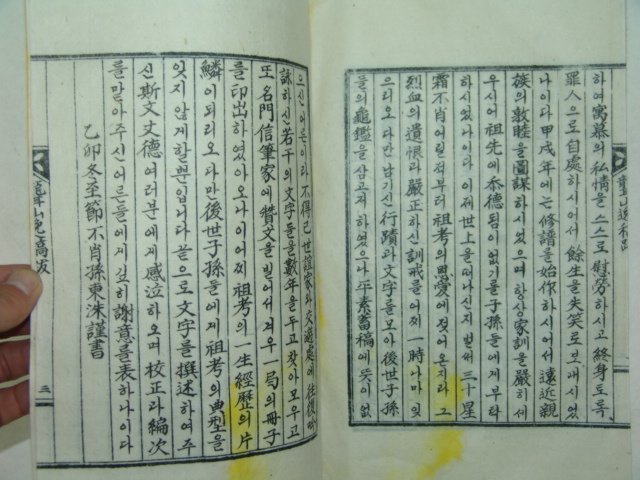 하여寓慕의私情을스스로慰勞하시고終身도록
罪人으로自處하시어서餘生을失笑로보내시었
나이다甲戌年에는修譜를始作하시어서遠近親
族의敦睦을圖謀하시었으며항상家訓을嚴히세
우시어祖先에忝德됨이없기를子孫들에게부탁
하시었나이다이제世上을떠나신지벌써三十星
霜不肖어릴적부터祖考의恩愛에젖어온지라그
烈血의遺恨과嚴正하신訓戒를어찌一時나마잊
으리오다만남기신行蹟과文字를모아後世子孫
들의龜鑑을삼고저하였으나平素蓄稿에뜻이없
으신어른이라不得已世誼家와交遊處에往復
詠하신若干의文字들을數年을두고찾아모우고
또名門信筆家에賛文을빌어서겨우一局의冊子
를印出하였아오나이어찌祖考의一生經歷의片
鱗이되리오다만後世子孫들에게祖考의典型을
잊지않게할뿐입니다끝으로文字를撰述하여주
신斯文丈德여러분에게感泣하오며校正과編次
를맡아주신어른들에게깊히謝意를表하나이다
乙卯冬至節不肖孫東洙謹書
三